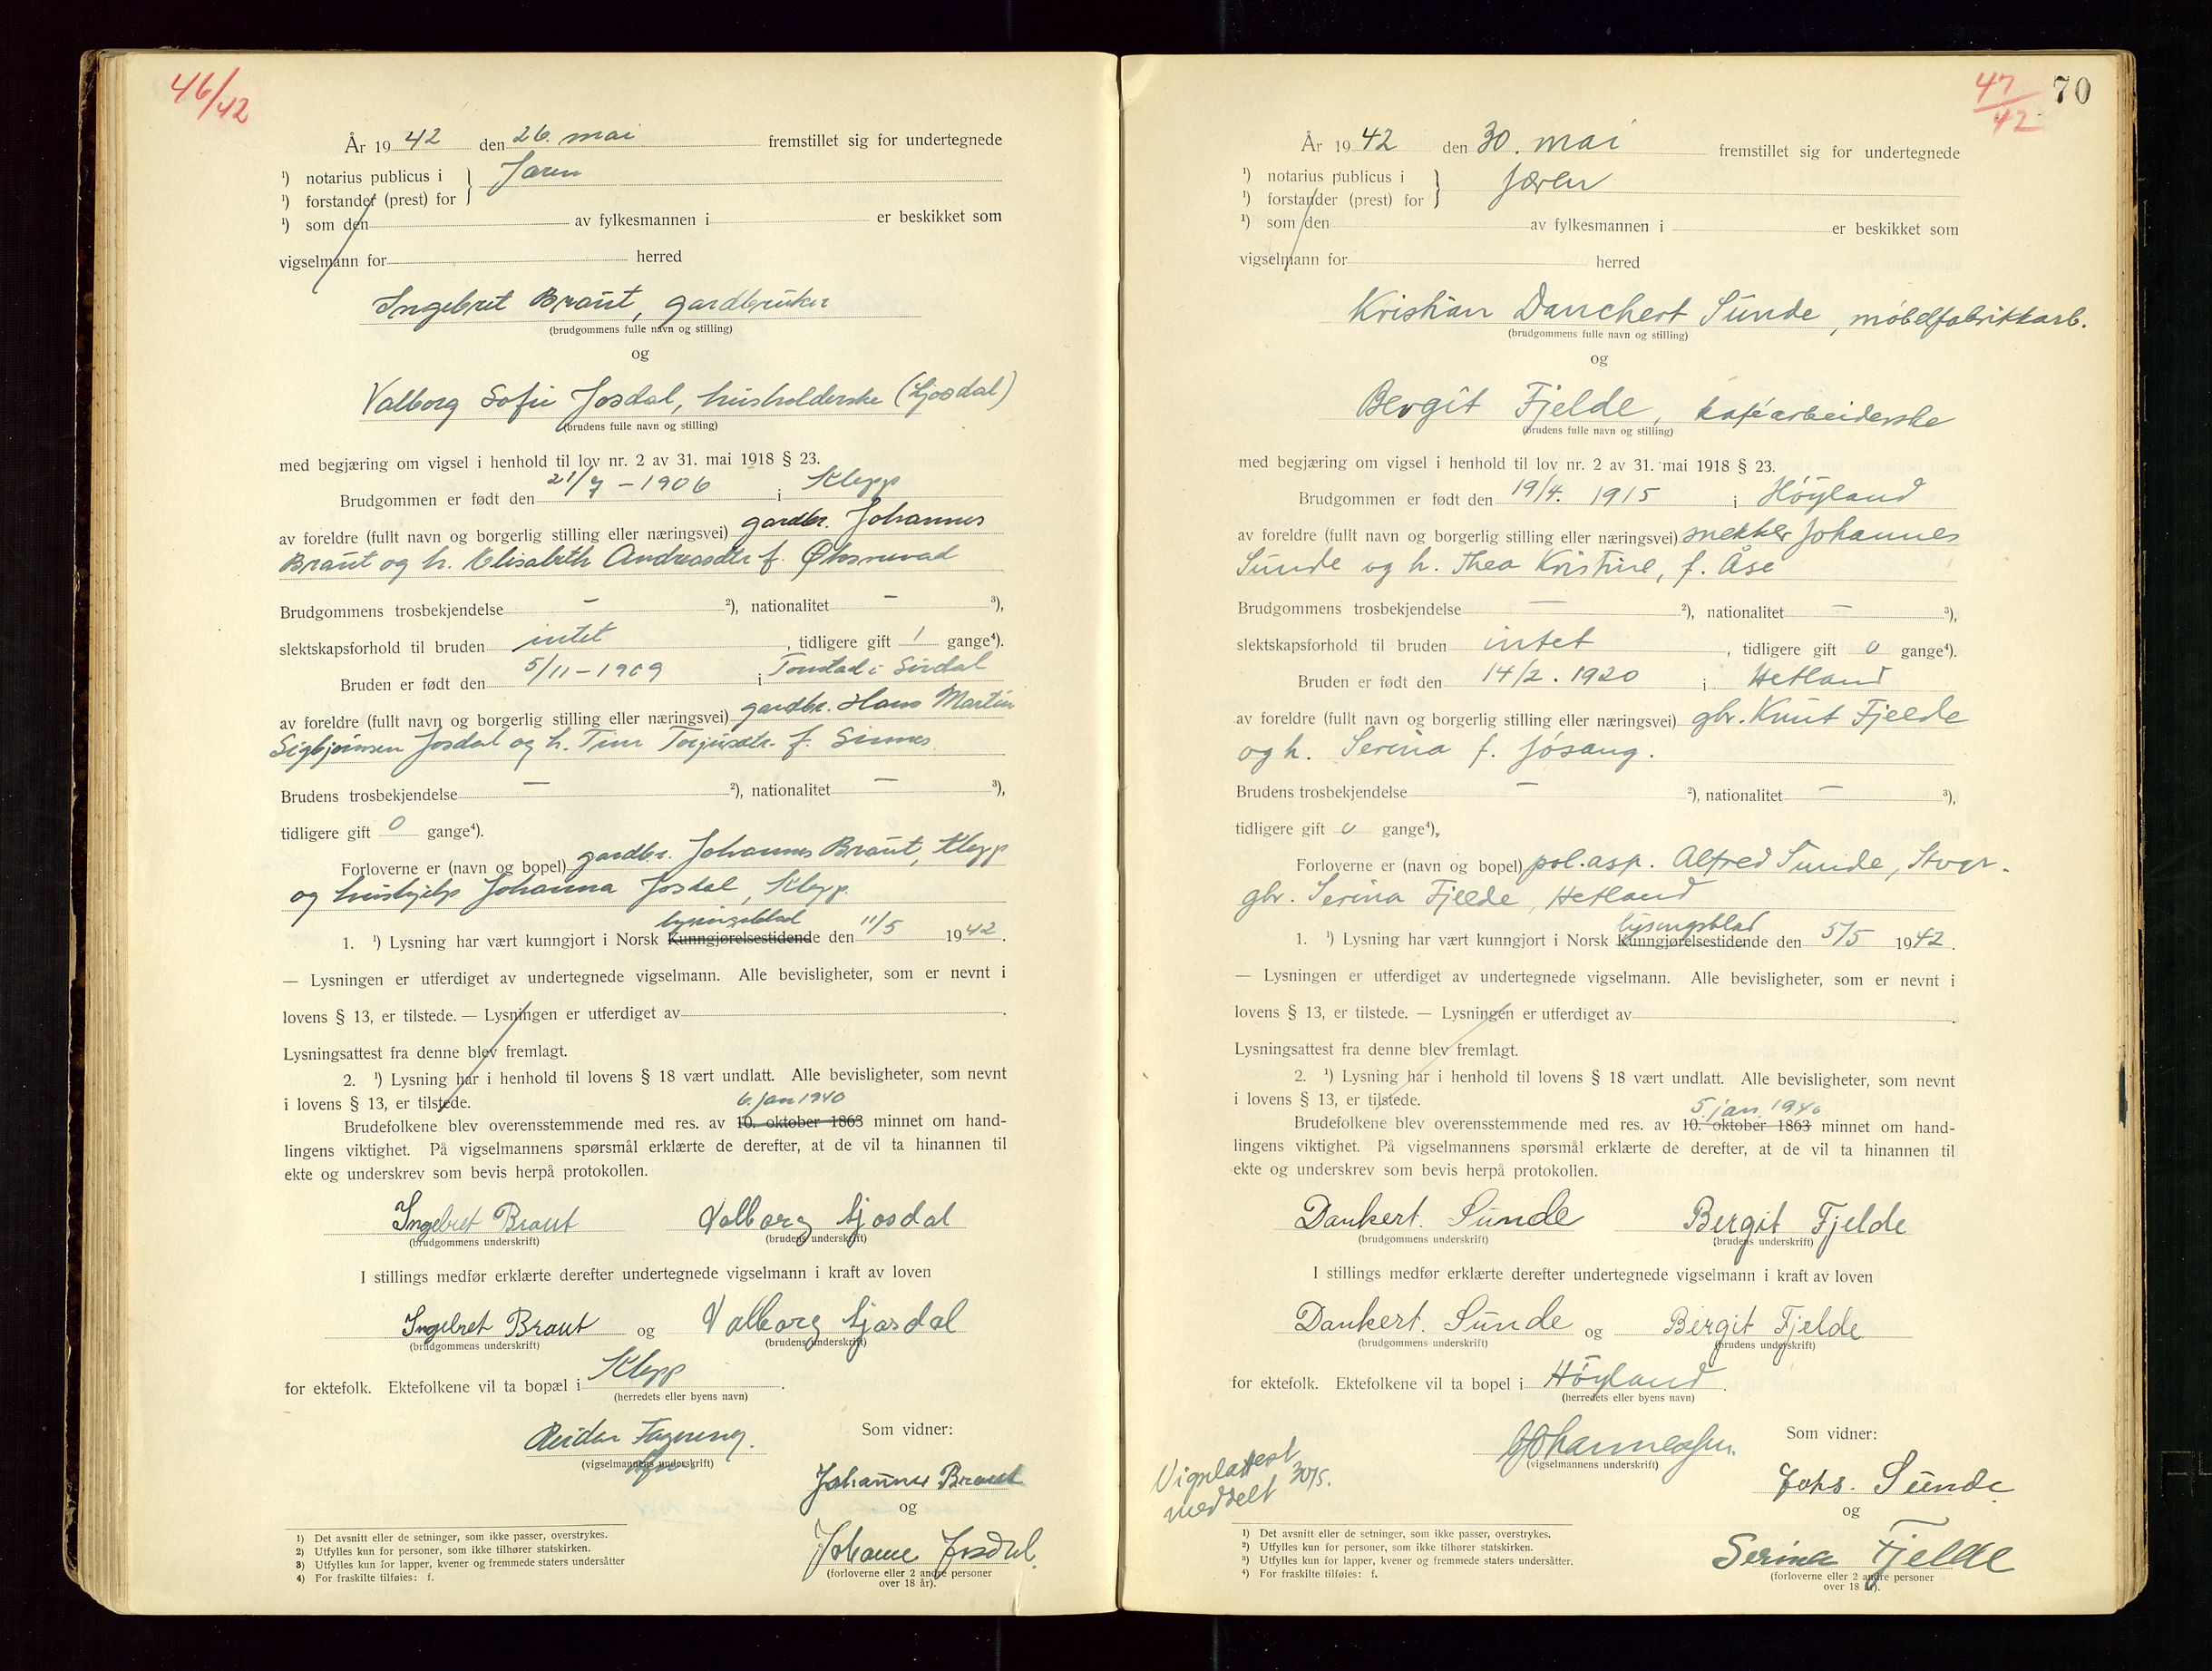 46/42
År 1942 den 26. mai fremstillet sig for undertegnede
¹) notarius publicus i } Jæren
¹) forstander (prest) for
¹) som den av fylkesmannen i er beskikket som
vigselmann for herred
Ingebret Braut, gardbruker
(brudgommens fulle navn og stilling)
og
Valborg Sofie Josdal, husholderske (Ljosdal)
(brudens fulle navn og stilling)
med begjæring om vigsel i henhold til lov nr. 2 av 31. mai 1918 § 23.
Brudgommen er født den 21/7 - 1906 i Klepp
av foreldre (fullt navn og borgerlig stilling eller næringsvei) gardbr. Johannes
Braut og h. Elisabeth Andreasdtr f. Øksnevad
Brudgommens trosbekjendelse — ²), nationalitet — ³),
slektskapsforhold til bruden intet, tidligere gift 1 gange⁴).
Bruden er født den 5/11 - 1909 i Tonstad i Sirdal
av foreldre (fullt navn og borgerlig stilling eller næringsvei) gardbr. Hans Martin
Sigbjørnsen Josdal og h. Tine Torjusdtr. f. Sinnes
Brudens trosbekjendelse — ²), nationalitet — ³),
tidligere gift 0 gange⁴).
Forloverne er (navn og bopel) gardbr. Johannes Braut, Klepp
og hushjelp Johanna Josdal, Klepp.
lysingsblad
1. ¹) Lysning har vært kunngjort i Norsk Kunngjørelsestidende den 11/5 1942.
— Lysningen er utferdiget av undertegnede vigselmann. Alle bevisligheter, som er nevnt i
lovens § 13, er tilstede. — Lysningen er utferdiget av .
Lysningsattest fra denne blev fremlagt.
2. ¹) Lysning har i henhold til lovens § 18 vært undlatt. Alle bevisligheter, som nevnt
i lovens § 13, er tilstede.
6. jan 1940
Brudefolkene blev overensstemmende med res. av 10. oktober 1863 minnet om hand-
lingens viktighet. På vigselmannens spørsmål erklærte de derefter, at de vil ta hinannen til
ekte og underskrev som bevis herpå protokollen.
Ingebret Braut Valborg Ljosdal
(brudgommens underskrift) (brudens underskrift)
I stillings medfør erklærte derefter undertegnede vigselmann i kraft av loven
Ingebret Braut og Valborg Ljosdal
(brudgommens underskrift) (brudens underskrift)
for ektefolk. Ektefolkene vil ta bopæl i Klepp.
(herredets eller byens navn)
Som vidner:
Reidar
(vigselmannens underskrift)
Johannes Braut
og
Johanne Josdal.
(forloverne eller 2 andre personer
over 18 år).
1) Det avsnitt eller de setninger, som ikke passer, overstrykes.
2) Utfylles kun for personer, som ikke tilhører statskirken.
3) Utfylles kun for lapper, kvener og fremmede staters undersåtter
4) For fraskilte tilføies: f.
47/42 70
År 1942 den 30. mai fremstillet sig for undertegnede
¹) notarius publicus i } Jæren
¹) forstander (prest) for
¹) som den av fylkesmannen i er beskikket som
vigselmann for herred
Kristian Danchert Sunde, møbelfabrikkarb.
(brudgommens fulle navn og stilling)
og
Bergit Fjelde, kaféarbeiderske
(brudens fulle navn og stilling)
med begjæring om vigsel i henhold til lov nr. 2 av 31. mai 1918 § 23.
Brudgommen er født den 19/4. 1915 i Høyland
av foreldre (fullt navn og borgerlig stilling eller næringsvei) snekker Johannes
Sunde og h. Thea Kristine, f. Åse
Brudgommens trosbekjendelse — ²), nationalitet — ³),
slektskapsforhold til bruden intet, tidligere gift 0 gange⁴).
Bruden er født den 14/2. 1920 i Hetland
av foreldre (fullt navn og borgerlig stilling eller næringsvei) gbr. Knut Fjelde
og h. Serina f. Jøsang.
Brudens trosbekjendelse — ²), nationalitet — ³),
tidligere gift 0 gange⁴).
Forloverne er (navn og bopel) pol.asp. Alfred Sunde, Stvgr.
gbr. Serina Fjelde, Hetland
lysingsblad
1. ¹) Lysning har vært kunngjort i Norsk Kunngjørelsestidende den 5/5 1942.
— Lysningen er utferdiget av undertegnede vigselmann. Alle bevisligheter, som er nevnt i
lovens § 13, er tilstede. — Lysningen er utferdiget av .
Lysningsattest fra denne blev fremlagt.
2. ¹) Lysning har i henhold til lovens § 18 vært undlatt. Alle bevisligheter, som nevnt
i lovens § 13, er tilstede.
5 jan. 1940
Brudefolkene blev overensstemmende med res. av 10. oktober 1863 minnet om hand-
lingens viktighet. På vigselmannens spørsmål erklærte de derefter, at de vil ta hinannen til
ekte og underskrev som bevis herpå protokollen.
Dankert. Sunde Bergit Fjelde
(brudgommens underskrift) (brudens underskrift)
I stillings medfør erklærte derefter undertegnede vigselmann i kraft av loven
Dankert. Sunde og Bergit Fjelde
(brudgommens underskrift) (brudens underskrift)
for ektefolk. Ektefolkene vil ta bopel i Høyland.
(herredets eller byens navn)
Som vidner:
Johannessen.
(vigselmannens underskrift)
Vigslattest
meddelt 30/5.
Johs. Sunde
og
Serina Fjelde
(forloverne eller 2 andre personer
over 18 år).
¹) Det avsnitt eller de setninger, som ikke passer, overstrykes.
²) Utfylles kun for personer, som ikke tilhører statskirken.
³) Utfylles kun for lapper, kvener og fremmede staters undersåtter.
⁴) For fraskilte tilføies: f.